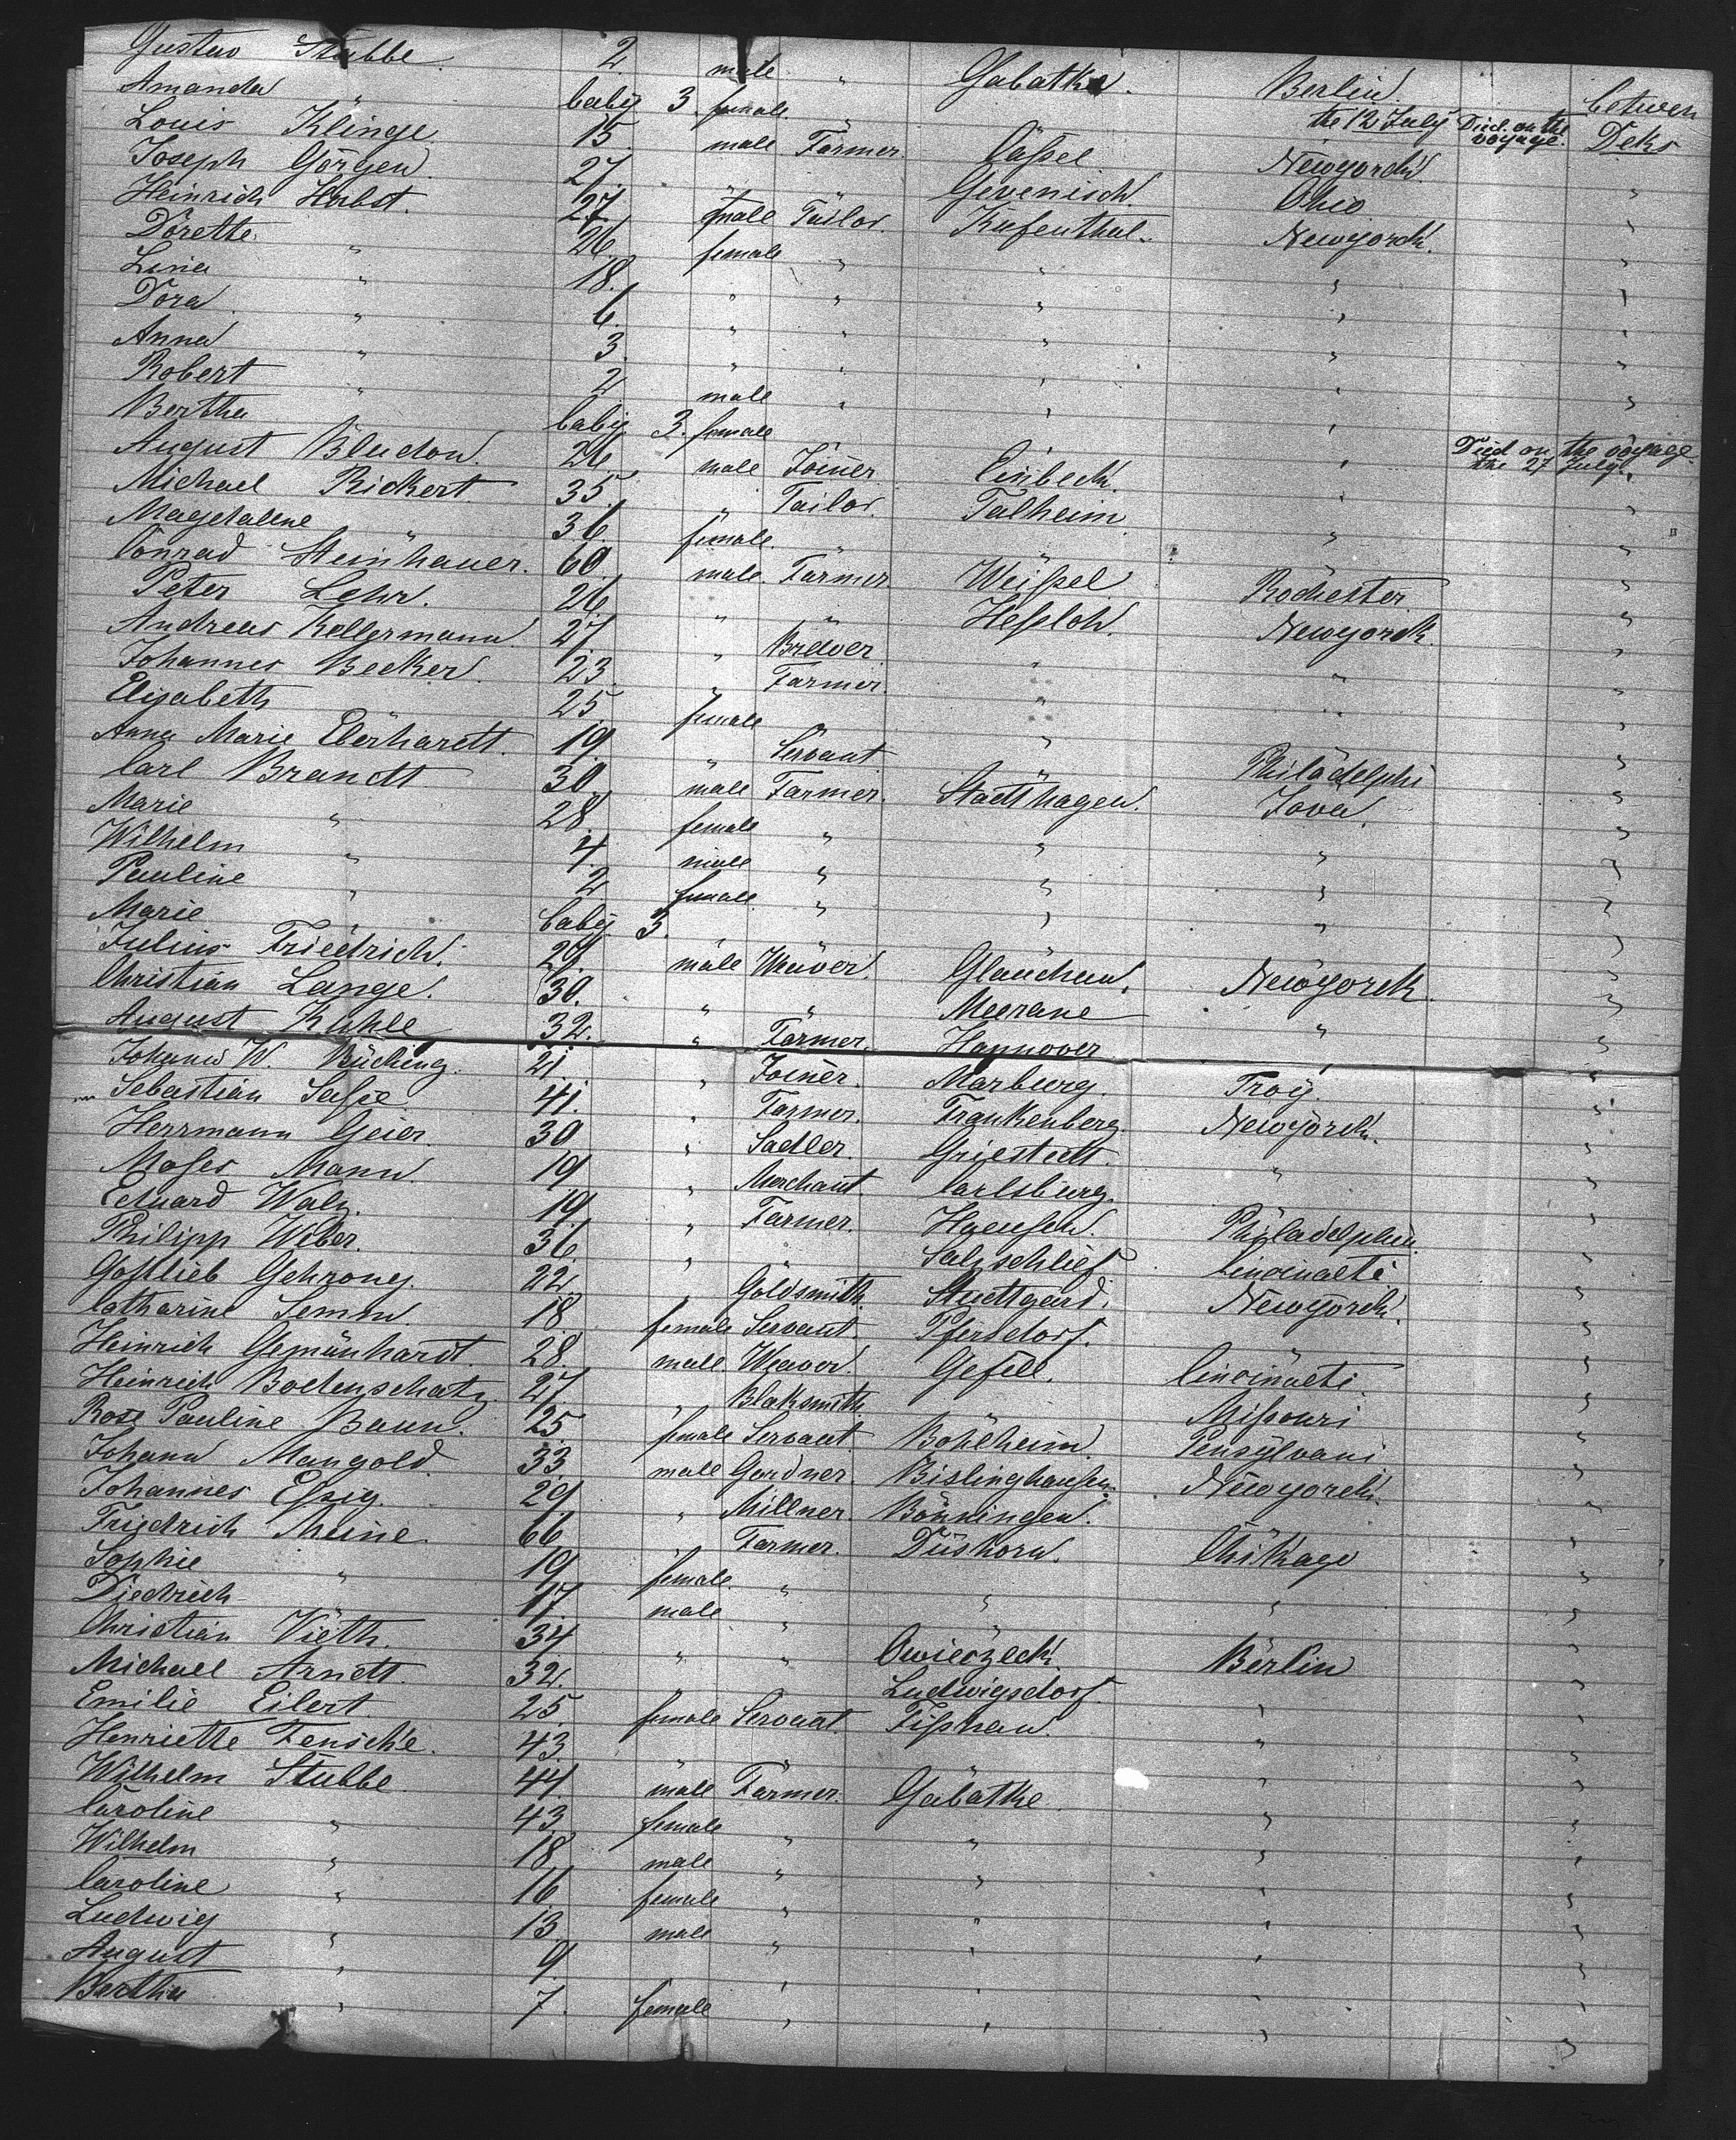 Gustav Stubbe. 2. male " Gabatke. Berlin. between
Amanda " baby 3. female. " the 12 July Died on the voyage. Deks
Louis Klinge. 15. male Farmer. Caßel Newyorck.
Joseph Görgen. 27. " " Gevenisch Ohio "
Heinrich Herbst. 27. male Tailor. Kufenthal. Newyorck. "
Dorette. " 26. female " " " "
Lina " 18. " " " " "
Dora " 6. " " " " "
Anna " 3. " " " " "
Robert " 2. male " " " "
Bertha " baby 3. female " " Died on the voyage the 27 July.
August Bludow. 26. male Joiner Einbeck. " "
Michael Rickert 35. " Tailor. Talheim " "
Magdalene " 36. female. " " "
Conrad Steinhauer. 60. male. Farmer. Weißel Rochester "
Peter Lehr. 26. " " Heßloh. Newyorck. "
Andreas Kellermann. 27. " Brewer. " " "
Johannes Becker. 23. " Farmer. " " "
Elisabeth 25. female " "
Anna Marie Eberhardt. 19. " Servant " Philadelphi "
Carl Brandt 30. male Farmer. Stadthagen. Jova. "
Marie " 28. female " " " "
Wilhelm " 4. male " " " "
Pauline " 2. female. " " " "
Marie " baby 3. " "
Julius Friedrich. 27. male Weaver. Glauchau. Newyorck. "
Christian Lange. 30. " " Meerane " "
August Kuhle 32. " Farmer. Hannover " "
Johann W. Bücking. 21. " Joiner. Marburg. Troy. "
Sebastian Saße. 41. " Farmer. Frankenberg. Newyorck. "
Herrmann Geier. 30 " Sadler. Griestedt. " "
Moses Mann. 19 " Merchant. Carlsburg. "
Eduard Walz. 19. " Farmer. Philadelphia. "
Philipp Weber. 36. " " Salzschlief. Cincinaeti. "
Gottlieb Gehrong. 22. " Goldsmith. Stuttgard. Newyorck. "
Catharine Semm. 18. female Servant. Pfersdorf. " "
Heinrich Gemänhardt. 28. male. Weaver. Gefell. Cincinaeti. "
Heinrich Bodenschatz. 27. " Blaksmith. " Mißouri "
Rose Pauline Baun. 25. female Servant. Böhlheim Pensylvani. "
Johann Mangold. 33. male Gardner. Bislinghausen. Newyorck. "
Johannes Eßig. 29. " Millner. Bönningen. " "
Friedrich Meine. 66. " Farmer. Düshorn. Chikago "
Sophie " 19. female. " " " "
Diedrich " 17. male " " " "
Christian Vieth. 34. " " Owieczeck. Berlin "
Michael Arndt. 32. " " Ludwigsdorf. " "
Emilie Eilert. 25. female Servant Tißhau. " "
Henriette Fensch'e. 43. " " " " "
Wilhelm Stubbe 44. male Farmer. Gabatke. " "
Caroline " 43. female " " " "
Wilhelm " 18. male " " " "
Caroline " 16. female " " " "
Ludwig " 13. male " " " "
August " 9. " " " " "
Bertha " 7. female " " " "